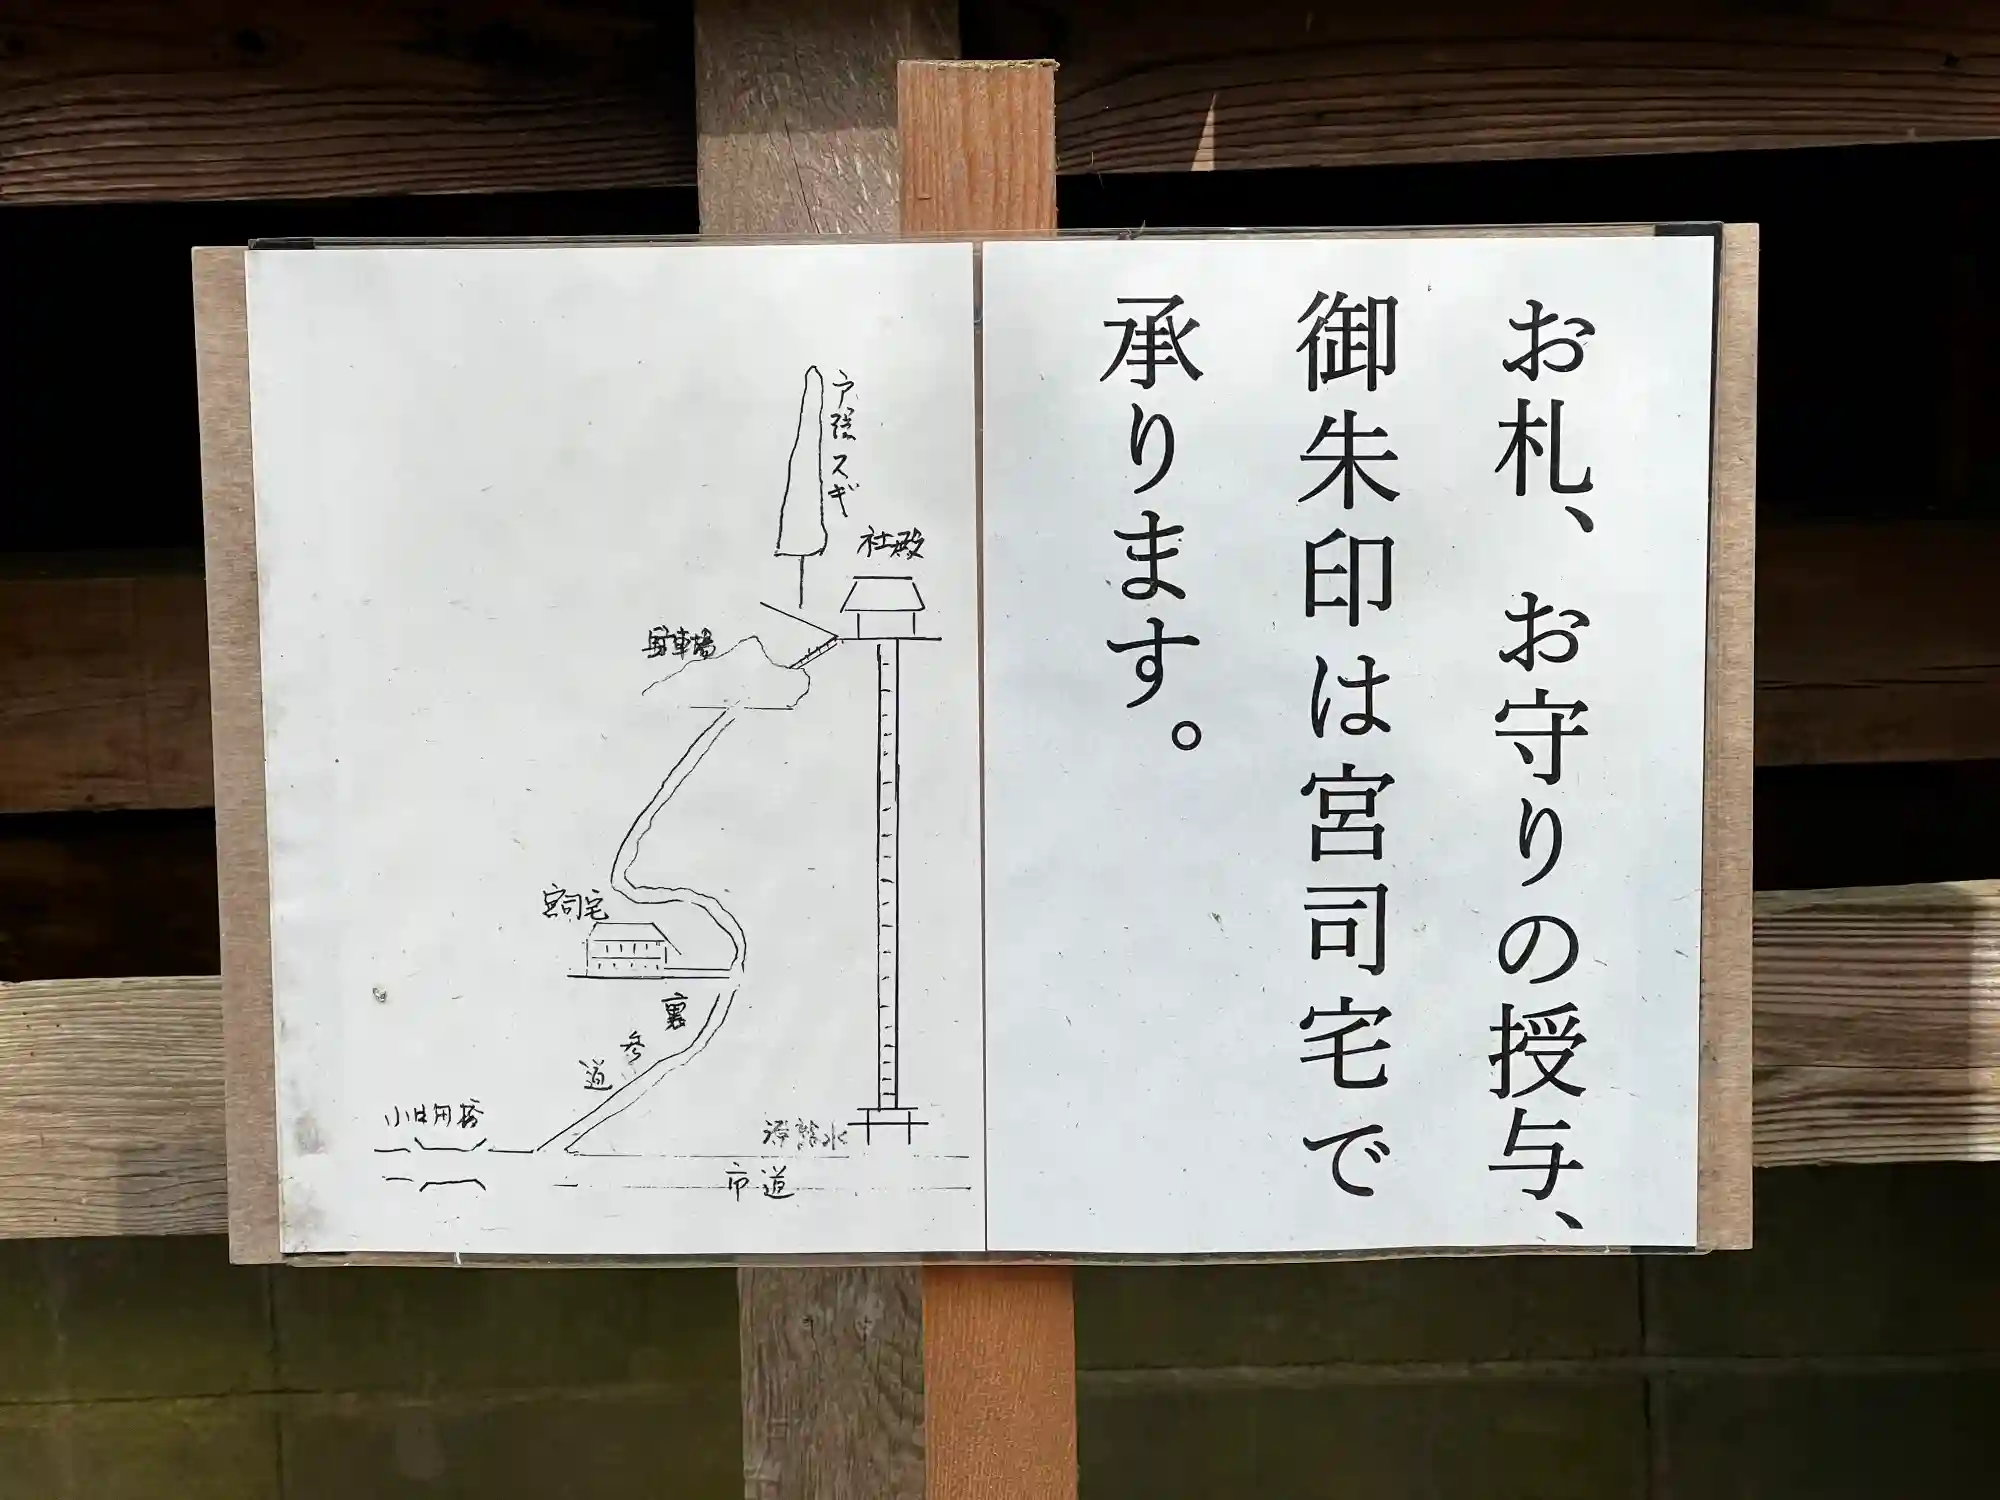 お札、お守りの授与、
御朱印は宮司宅で
承ります。
戸隠スギ
社殿
駐車場
宮司宅
裏参道
市道